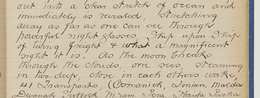 out into a clear stretch of ocean and
immediately is revealed, stretching
away as far as one can see through
powerful night glasses, Ship upon Ship
of living freight & what a magnificent
sight it is! As the moon breaks
through the clouds, one sees, steaming
in two deep, close in each others wake,
41 Transports (Osmanieh, Ionian,